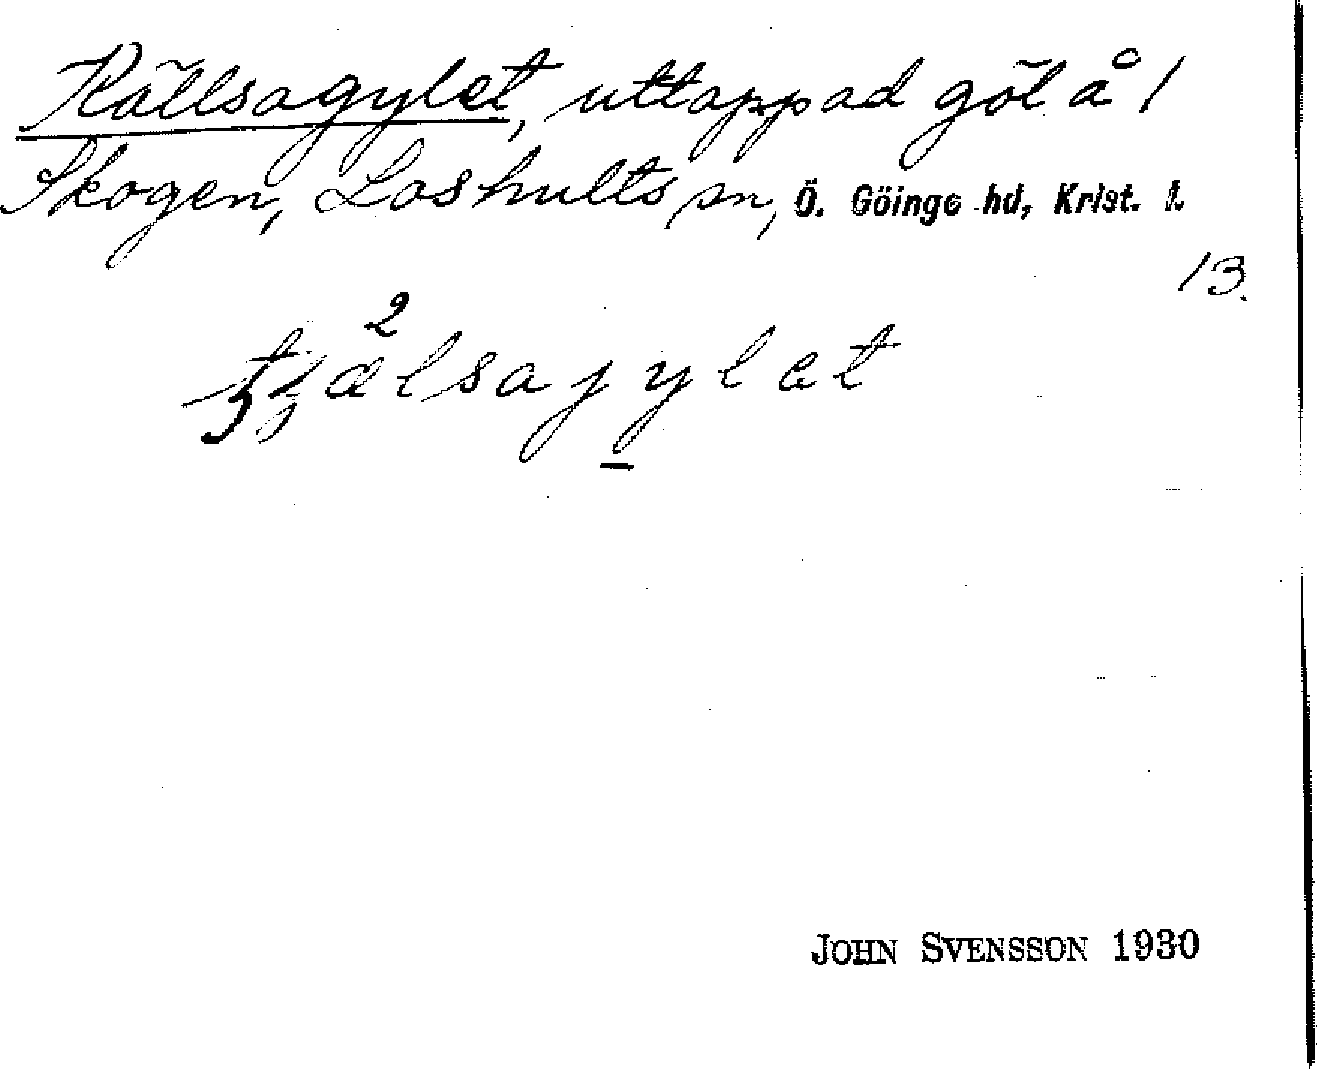 Källsagylet, uttappad göl å 1
Skogen, Loshults sn, Ö. Göinge hd, Krist. l.
13.
2
tjælsajylet
JOHN SVENSSON 1930